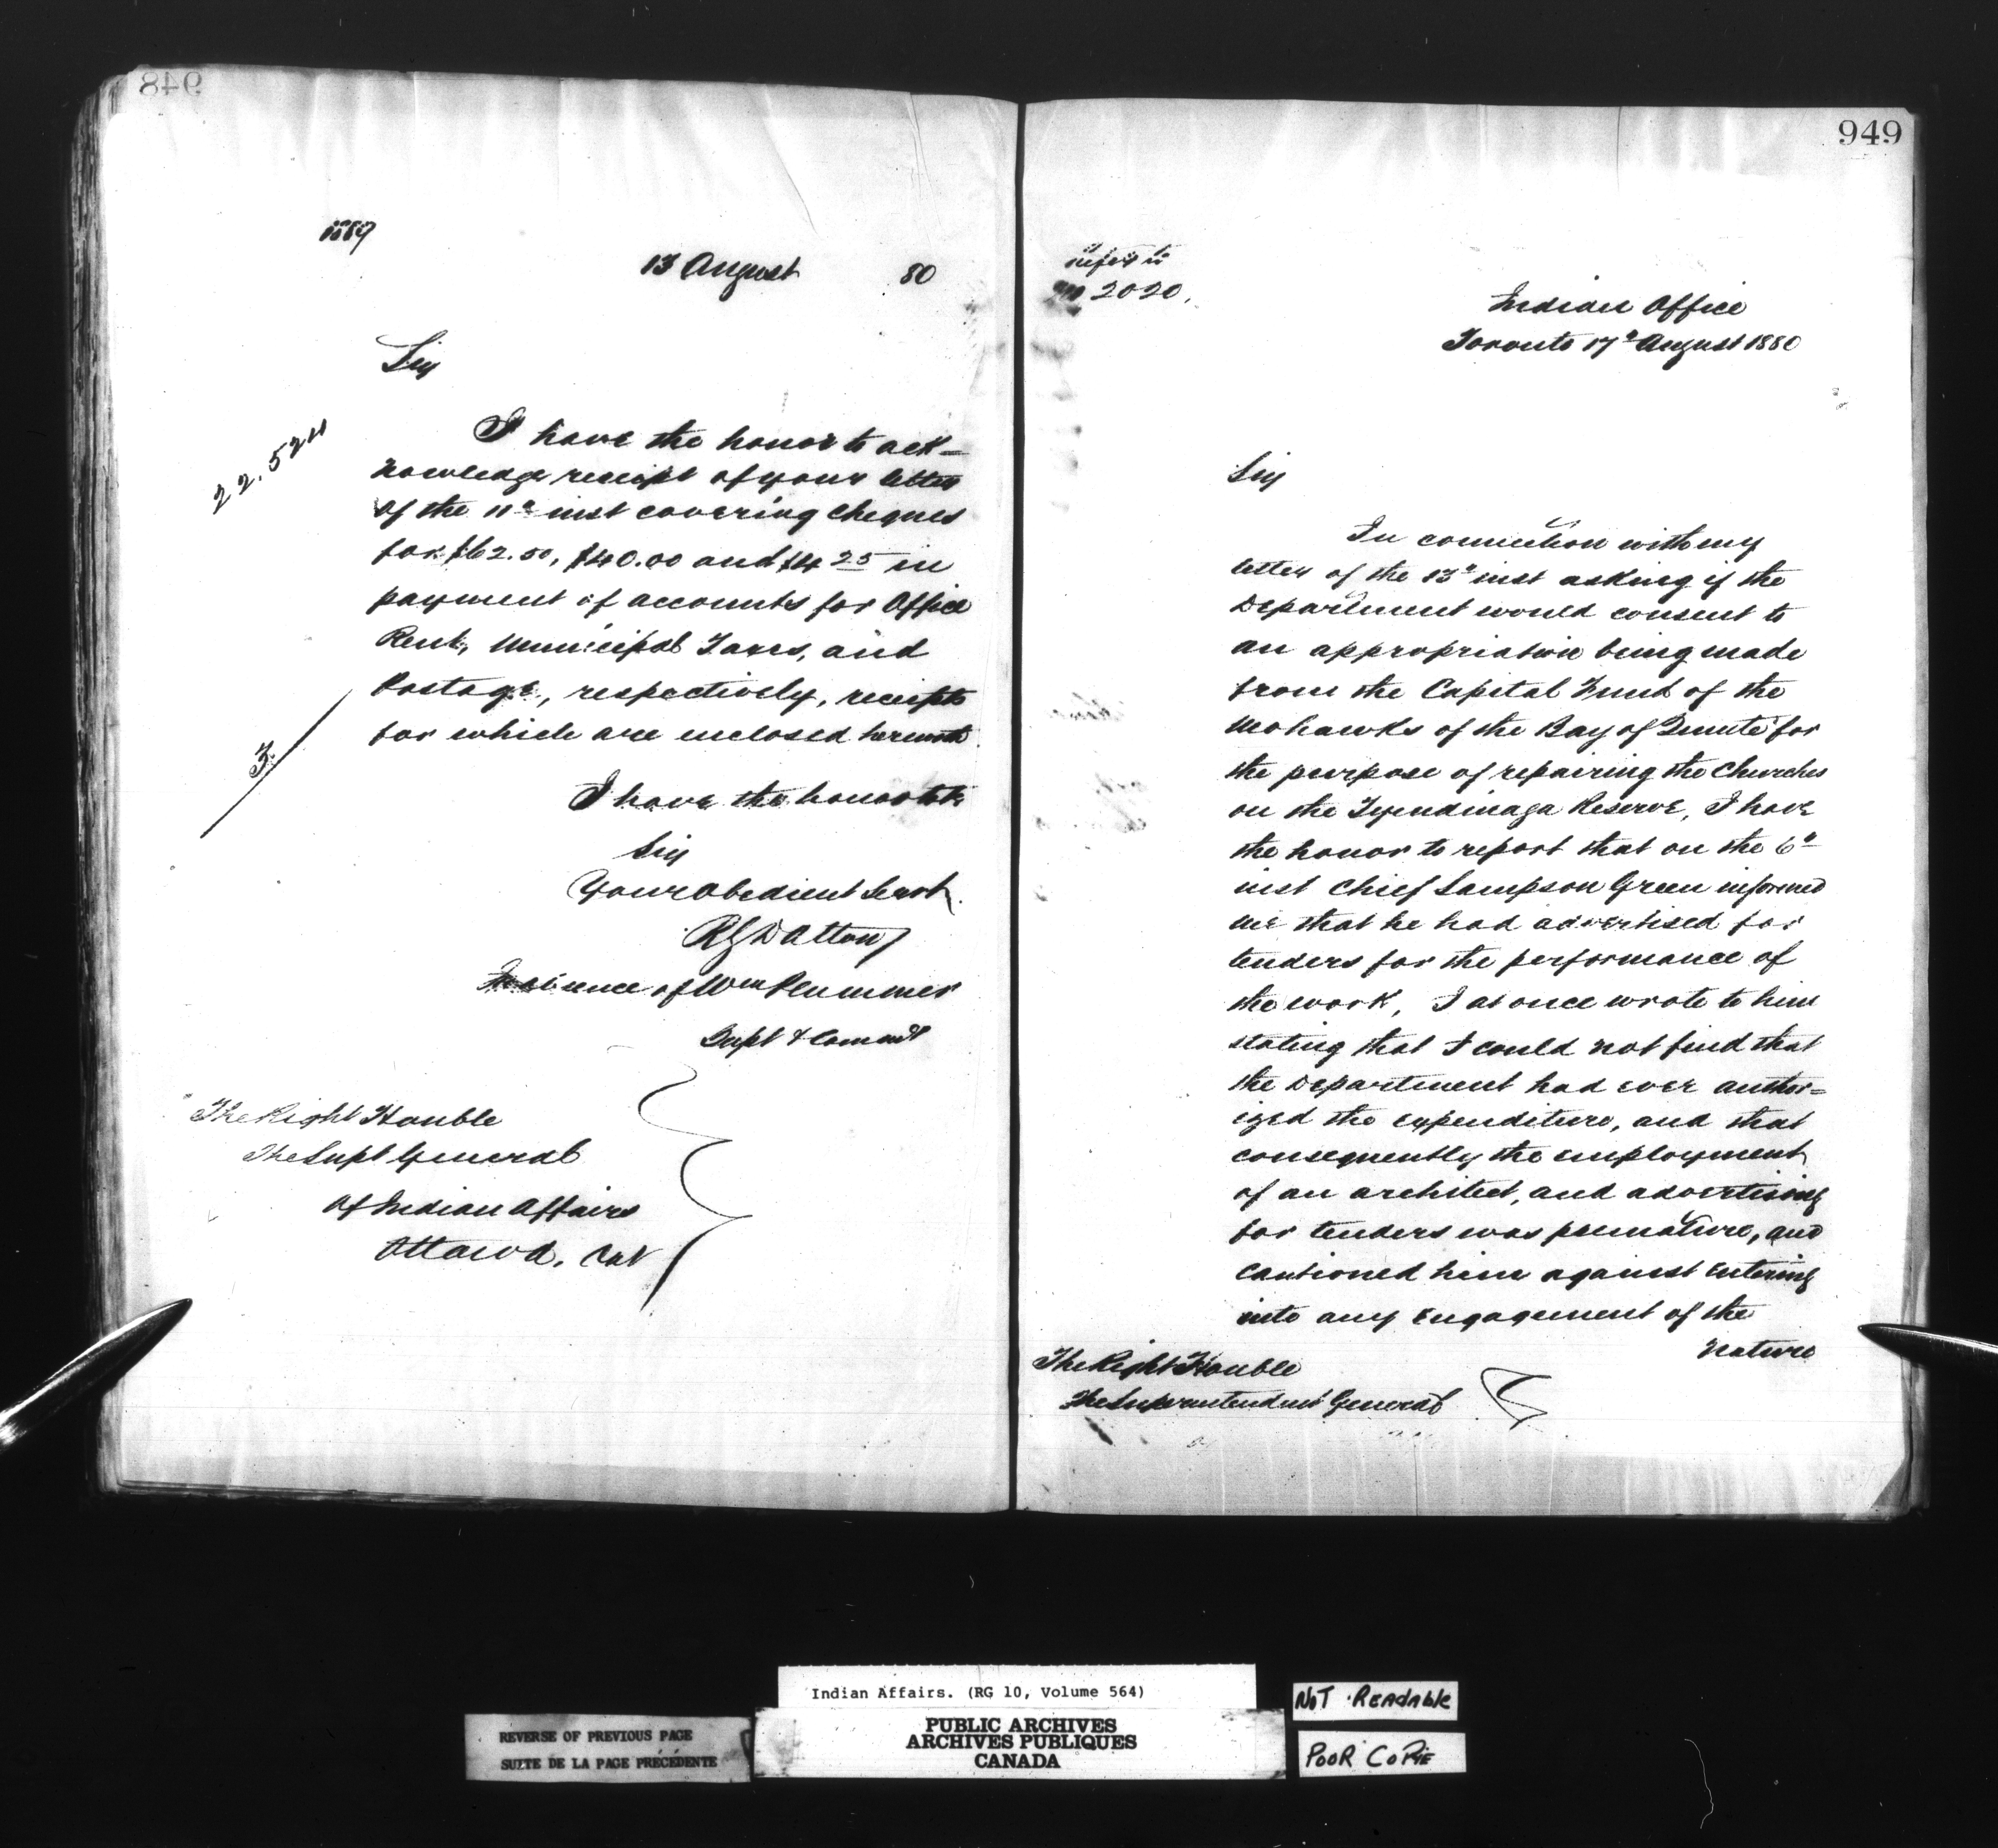 948
1889
13 August 80
Sir
22.524
I have the honor to ack-
nowledge receipt of your letter
of the 11" inst covering cheques
for $62.50, $40.00 and $4 25 in
payment of accounts for Office
Rent, Municipal Taxes, and
Postage, respectively, receipts
for which are enclosed herewith
3.
I have the honor to be
Sir
Your Obedient Servt.
Dalton
In absence of Wm Plummer
Supt & Comm
The Right Honble
The Supt General
Of Indian Affairs
Ottawa.
949
2020.
Indian Office
Toronto 17" August 1880
Sir
In connection with my
letter of the 13" inst asking if the
Department would consent to
an appropriation being made
from the Capital Fund of the
Mohawks of the Bay of Quinté for
the purpose of repairing the Churches
on the Tyendinaga Reserve, I have
the honor to report that on the 6"
inst Chief Sampson Green informed
me that he had advertised for
tenders for the performance of
the work, I at once wrote to him
stating that I could not find that
the Department had ever author=
ized the expenditure, and that
consequently the employment
of an architect, and advertising
for tenders was premature, and
cautioned him against entering
into any engagement of the
nature
The Right Honble
The Superintendent General
Indian Affairs. (RG 10, Volume 564)
REVERSE OF PREVIOUS PAGE
SUITE DE LA PAGE PRÉCÉDENTE
PUBLIC ARCHIVES
ARCHIVES PUBLIQUES
CANADA
NOT READABLE
POOR COPIE